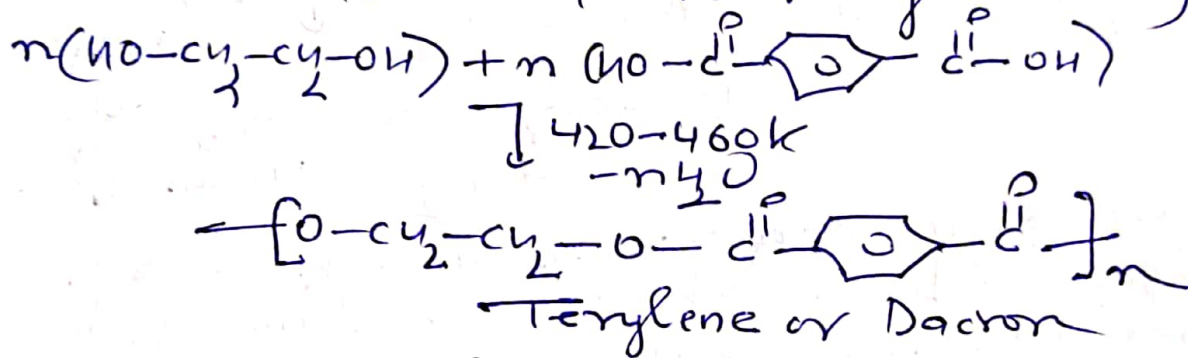 n(HO-CH2-CH2-OH) + n (HO-C(=O)-C6H4-C(=O)-OH)
420-460K
-nH2O
[O-CH2-CH2-O-C(=O)-C6H4-C(=O)]n
Terylene or Dacron